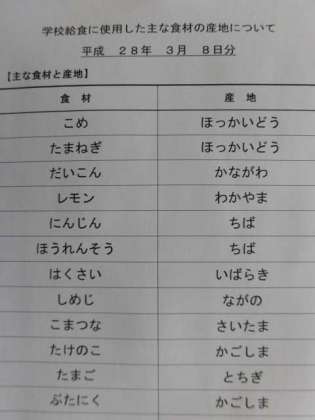 学校給食に使用した主な食材の産地について
平成 28年 3月 8日分
【主な食材と産地】
食 材 産 地
こめ ほっかいどう
たまねぎ ほっかいどう
だいこん かながわ
レモン わかやま
にんじん ちば
ほうれんそう ちば
はくさい いばらき
しめじ ながの
こまつな さいたま
たけのこ かごしま
たまご とちぎ
ぶたにく かごしま